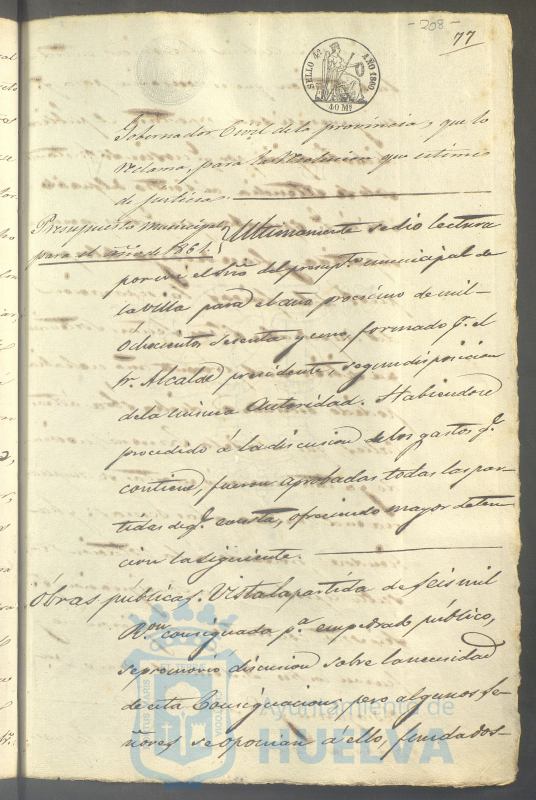 - 208 -
77
SELLO 4º AÑO 1860
40 Ms
Gobernador Civil de la provincia, que lo
reclama, para la resolucion que estime
de justicia.
Presupuesto municipal
para el año de 1861.
Ultimamente se dio lectura
por mi el Srio del presupto municipal de
la villa para el año procsimo de mil
ochocientos sesenta y uno, formado pr. el
Sr. Alcalde presidente, segun disposicion
de la misma Autoridad. Habiendose
procedido á la discusion de los gastos q.
contiene, fueron aprobadas todas las par-
tidas de q. consta, ofreciendo mayor deten-
cion la siguiente.
Obras publicas. Vista la partida de seis mil
Ron consignada pa. empedrado público,
se promovió discusion sobre la necesidad
de esta consignacion; pero algunos Se-
ñores se oponian á ello, fundados
Ayuntamiento de
HUELVA